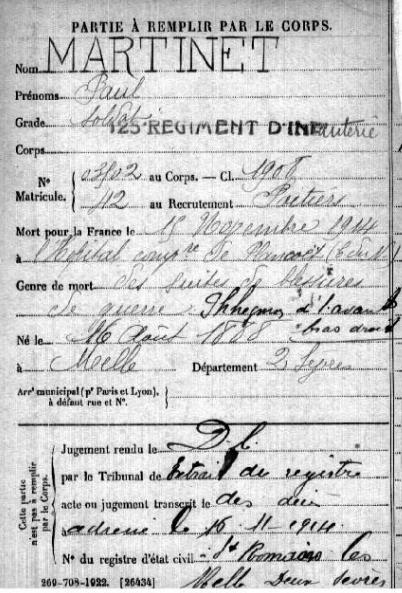 PARTIE À REMPLIR PAR LE CORPS.
Nom MARTINET
Prénoms Paul
Grade Soldat
125e REGIMENT D'INFanterie
Corps
N° 03902 au Corps. — Cl. 1908
Matricule. 412 au Recrutement Poitiers
Mort pour la France le 15 Novembre 1914
à l'Hôpital de
Genre de mort des suites de blessures
de guerre Phlegmon de l'avant
bras droit
Né le 16 Août 1888
à Melle Département 2 Sèvres
Arrt municipal (pr Paris et Lyon),
à défaut rue et N°.
Cette partie
n'est pas à remplir
par le Corps.
Jugement rendu le D.C.
par le Tribunal de Extrait du registre
acte ou jugement transcrit le des
le 16.11.1914.
N° du registre d'état civil St Romans les
Melle Deux Sèvres
269-708-1922. [26434]